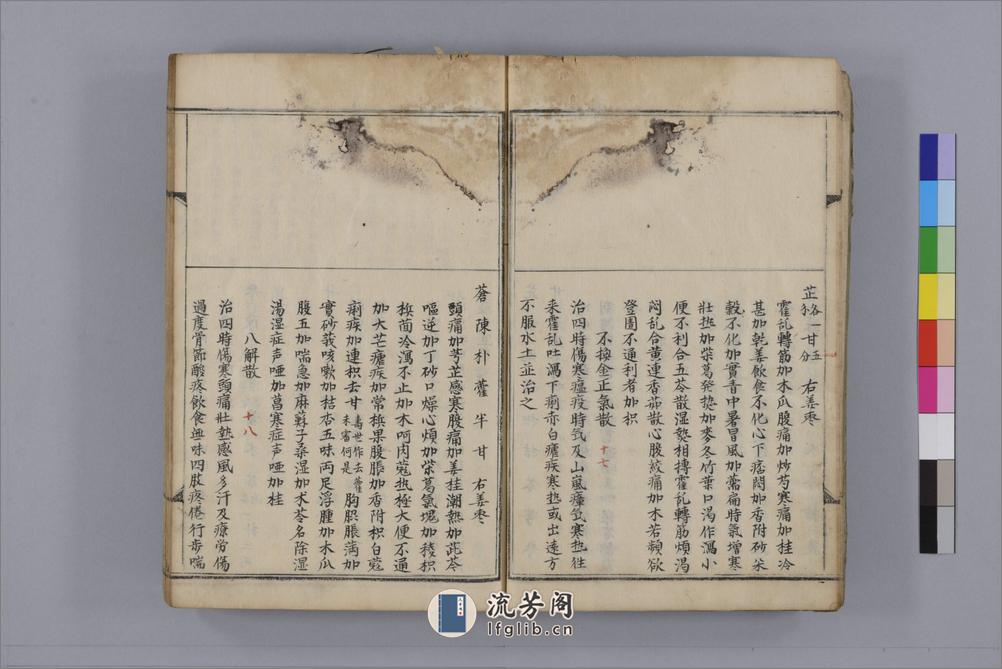 芷 各一 甘 五分 右姜枣
霍乱轉筋加木瓜腹痛加炒芍寒痛加挂冷
甚加乾姜飲食不化心下痞悶加香附砂米
穀不化加實青中暑冒風加薷扁時氣增寒
壮热加柴葛発热加麥冬竹葉口渴作瀉小
便不利合五苓散湿熱相摶霍乱轉筋煩渴
闷乱合黄連香茹散心腹絞痛加木若頻欲
登圊不通利者加枳
不換金正氣散 十七
治四時傷寒瘟疫時気及山嵐瘴気寒热往
来霍乱吐瀉下痢赤白瘧疾寒热或出远方
不服水土並治之
蒼陳朴藿半甘 右姜枣
頭痛加芎芷感寒腹痛加姜挂潮熱加茈芩
嘔逆加丁砂口燥心煩加柴葛氣塊加稜枳
梹茴冷瀉不止加木呵肉蔻热極大便不通
加大芒瘧疾加常梹果腹脹加香附枳白蔻
痢疾加連枳去甘 壽世作去藿未審何是 胸膈脹满加
實砂莪咳嗽加桔杏五味两足浮腫加木瓜
腹五加喘急加麻蘇子桑湿加木苓名除湿
湯湿症声唖加菖寒症声唖加桂
八解散 十八
治四時傷寒頭痛壮埶感風多汗及療劳傷
過度骨節酸疼飲食無味四肢疼倦行步喘
流芳阁
lfglib.cn